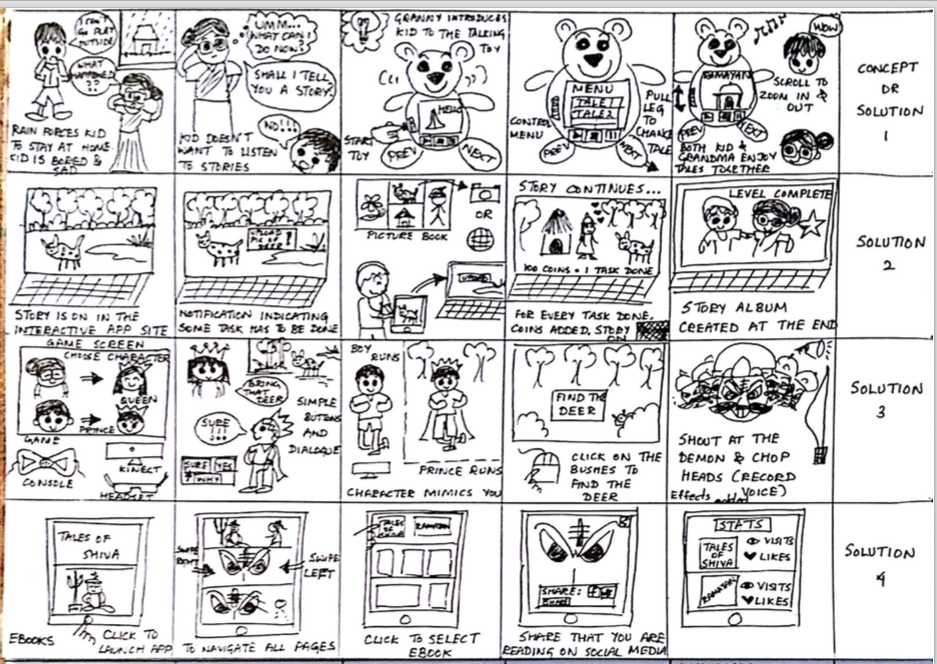 I CAN'T
GO PLAY
OUTSIDE
WHAT
HAPPENED
??
RAIN FORCES KID
TO STAY AT HOME.
KID IS BORED &
SAD
UMM...
WHAT CAN I
DO NOW?
SHALL I TELL
YOU A STORY.
NO!!!
KID DOESN'T
WANT TO LISTEN
TO STORIES
GRANNY INTRODUCES
KID TO THE TALKING
TOY
HELLO
START
TOY
PREV
NEXT
MENU
TALE 1
TALE 2
CONTROL
MENU
PULL
LEG
TO
CHANGE
TALE
PREV
NEXT
WOW
RAMAYAN
SCROLL TO
ZOOM IN &
OUT
PREV
NEXT
BOTH KID &
GRANDMA ENJOY
TALES TOGETHER
CONCEPT
OR
SOLUTION
1
STORY IS ON IN THE
INTERACTIVE APP SITE
UPLOAD
PIC OF
DEER ?
NOTIFICATION INDICATING
SOME TASK HAS TO BE DONE
PICTURE BOOK
OR
STORY CONTINUES...
100 COINS = 1 TASK DONE
FOR EVERY TASK DONE,
COINS ADDED, STORY
ON
LEVEL COMPLETE
STORY ALBUM
CREATED AT THE END
SOLUTION
2
GAME SCREEN
CHOOSE CHARACTER
QUEEN
PRINCE
GAME
CONSOLE
KINECT
HEADSET
BRING
THAT
DEER
SURE
!!!
SURE YES
WHY
SIMPLE
BUTTONS
AND
DIALOGUE
BOY
RUNS
PRINCE RUNS
CHARACTER MIMICS YOU
FIND THE
DEER
CLICK ON THE
BUSHES TO
FIND THE
DEER
SHOUT AT THE
DEMON & CHOP
HEADS (RECORD
VOICE)
Effects added
SOLUTION
3
TALES OF
SHIVA
EBOOKS
CLICK TO
LAUNCH APP
SWIPE
RIGHT
SWIPE
LEFT
TO NAVIGATE ALL PAGES
TALES
OF
SHIVA
RAMAYAN
CLICK TO SELECT
EBOOK
SHARE:
SHARE THAT YOU ARE
READING ON SOCIAL MEDIA
STATS
TALES
OF
SHIVA
VISITS
LIKES
RAMAYAN
VISITS
LIKES
SOLUTION
4